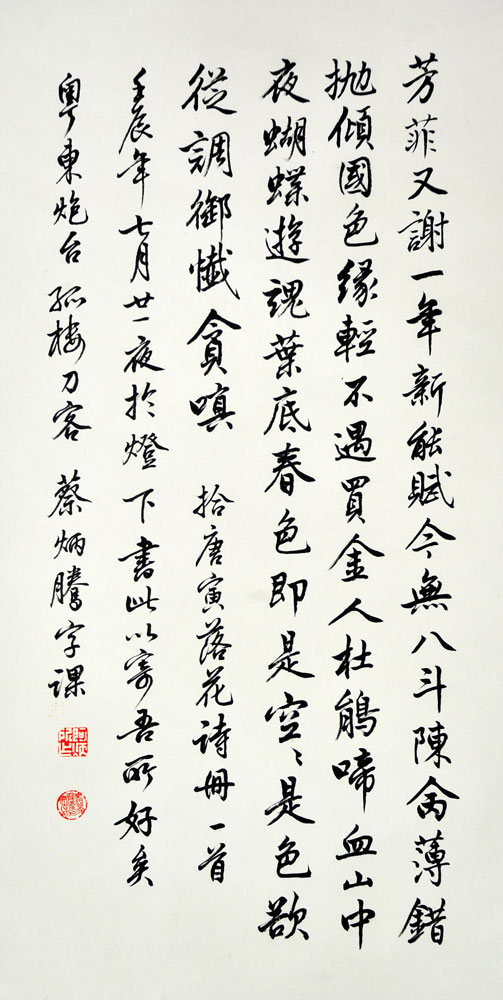 芳菲又謝一年新能賦今無八斗陳禽薄錯
拋傾國色緣輕不遇買金人杜鵑啼血山中
夜蝴蝶遊魂葉底春色即是空〻是色欲
從調御懺貪嗔 拾唐寅落花詩冊一首
壬辰年七月廿一夜於燈下書此以寄吾所好矣
粵東炮台孤樓刀客 蔡炳騰字課